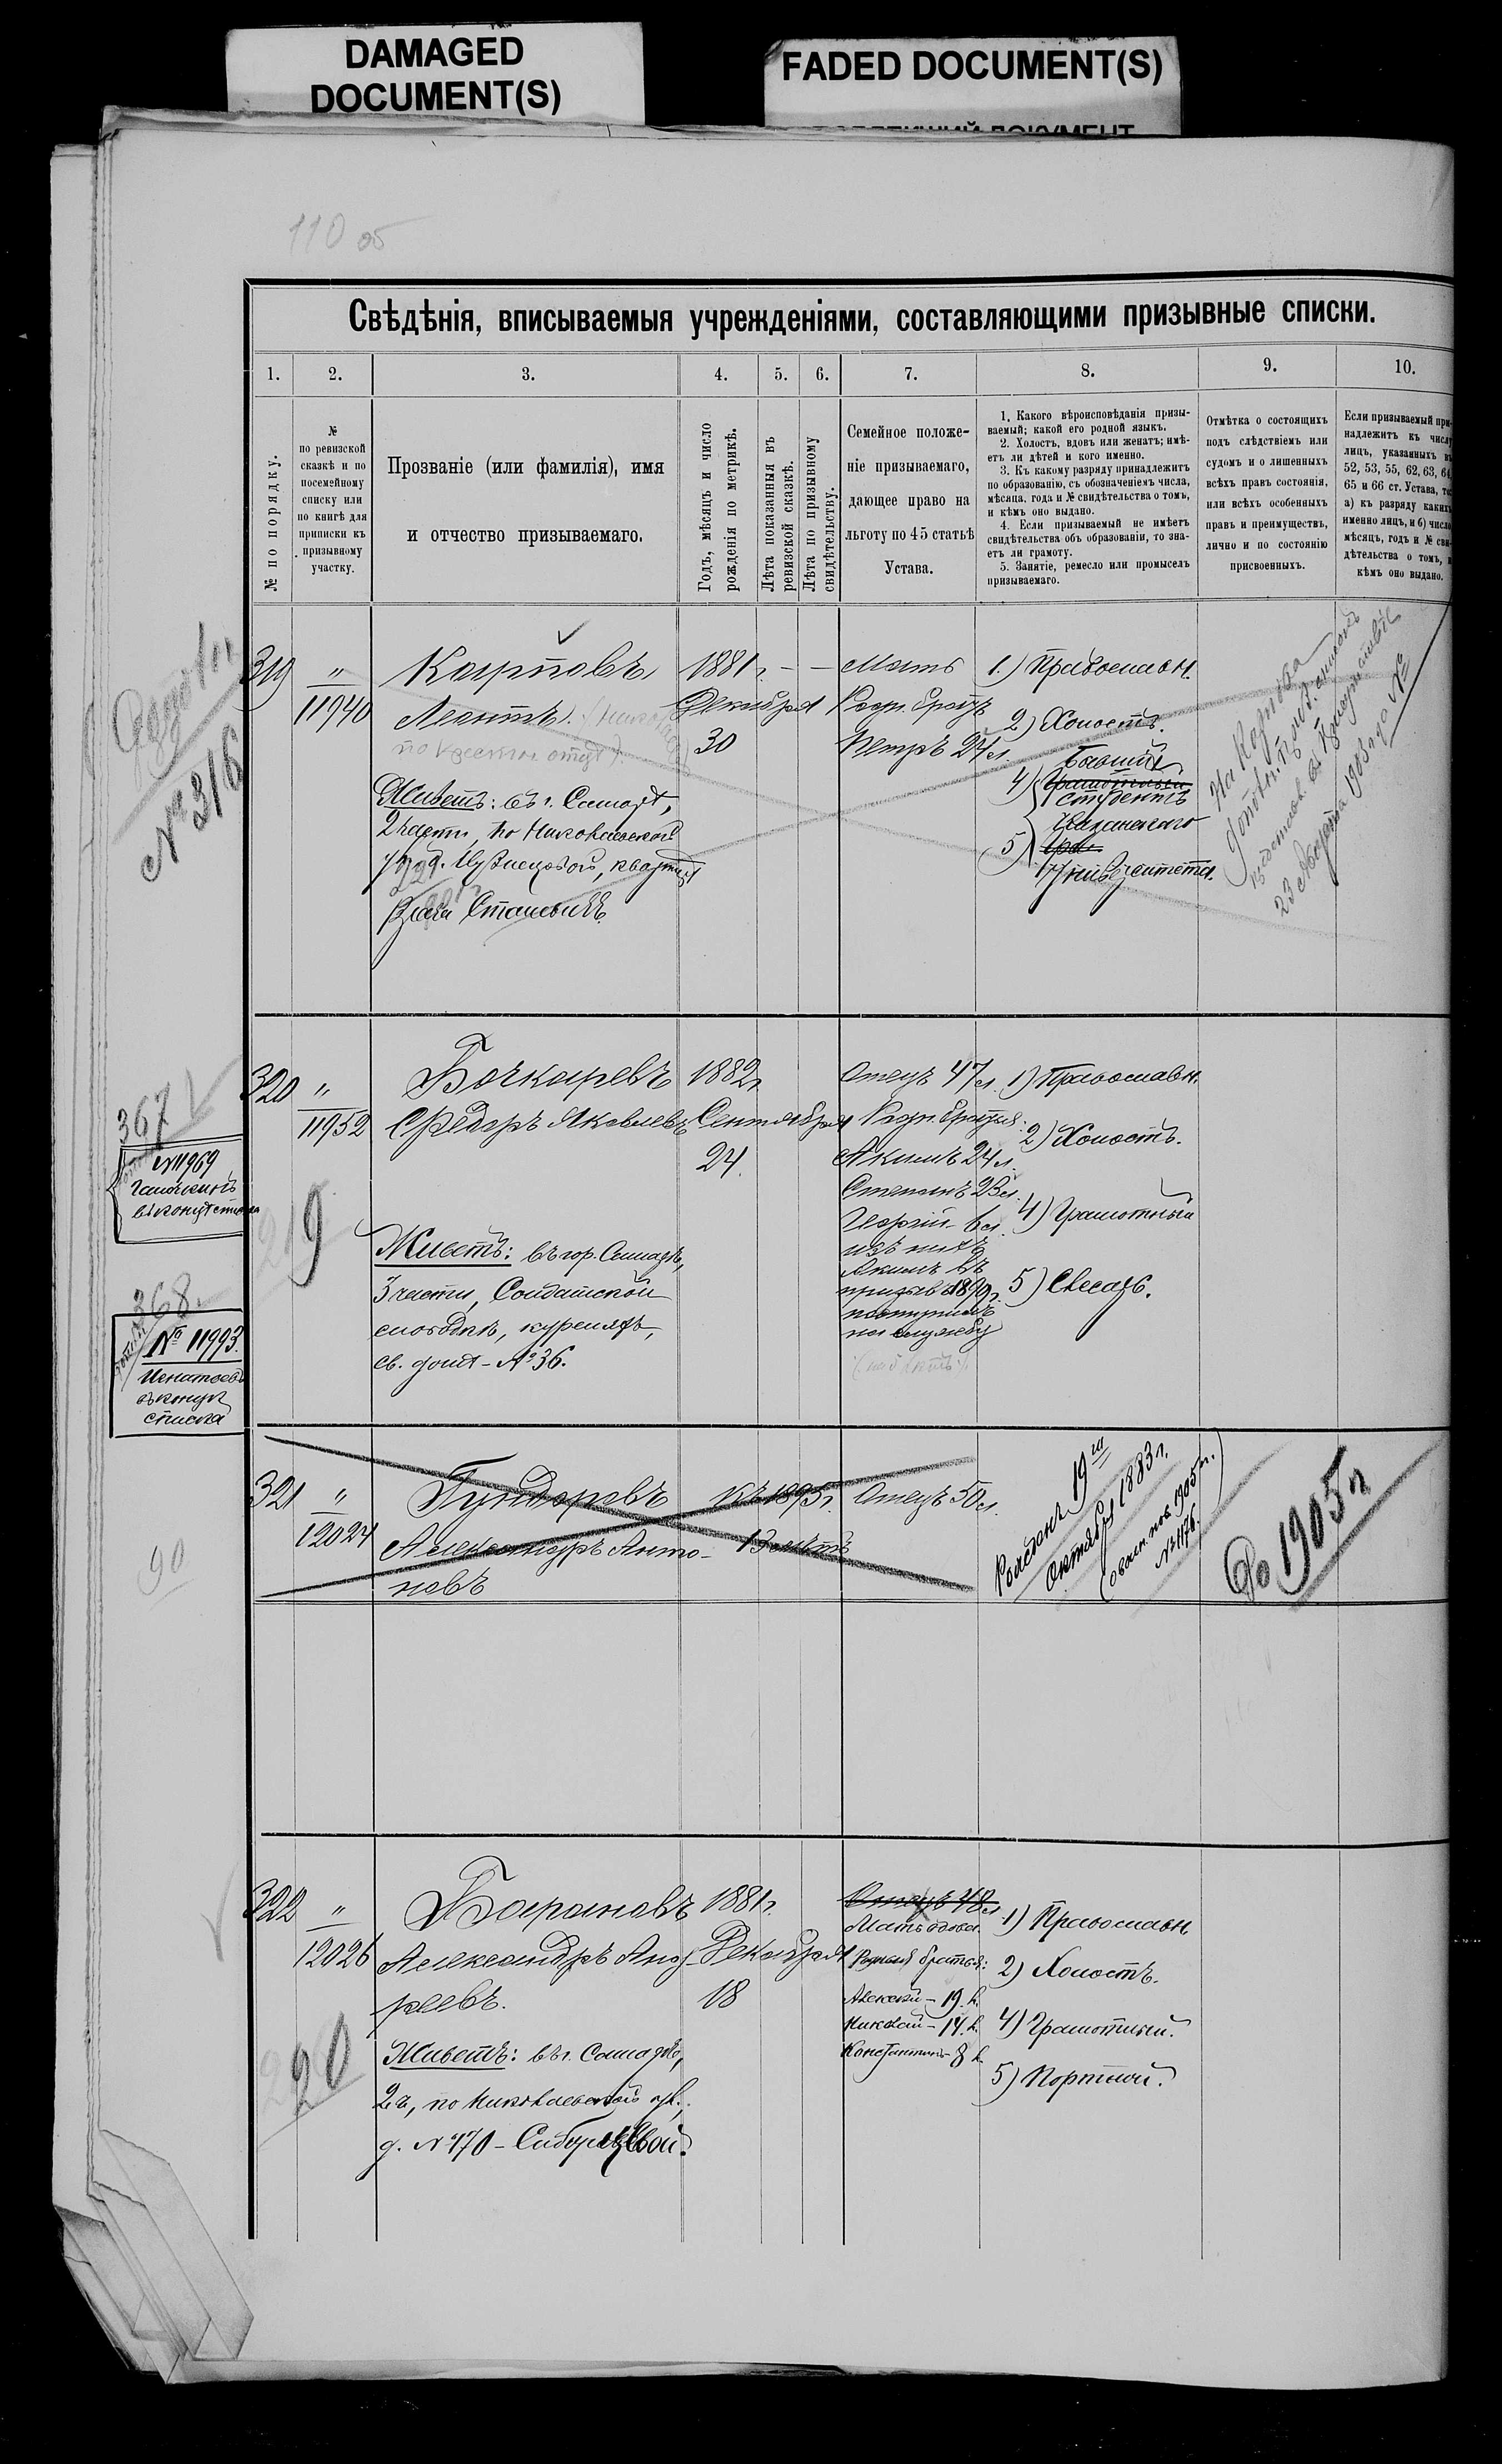 DAMAGED
DOCUMENT(S)
FADED DOCUMENT(S)
110 об
Свѣдѣнія, вписываемыя учрежденіями, составляющими призывные списки.
1.
2.
3.
4.
5.
6.
7.
8.
9.
10.
№ по порядку.
№
по ревизской
сказкѣ и по
посемейному
списку или
по книгѣ для
приписки къ
призывному
участку.
Прозваніе (или фамилія), имя
и отчество призываемаго.
Годъ, мѣсяцъ и число
рожденія по метрикѣ.
Лѣта показанныя въ
ревизской сказкѣ.
Лѣта по призывному
свидѣтельству.
Семейное положе-
ніе призываемаго,
дающее право на
льготу по 45 статьѣ
Устава.
1. Какого вѣроисповѣданія призы-
ваемый; какой его родной языкъ.
2. Холостъ, вдовъ или женатъ; имѣ-
етъ ли дѣтей и кого именно.
3. Къ какому разряду принадлежитъ
по образованію, съ обозначеніемъ числа,
мѣсяца, года и № свидѣтельства о томъ,
и кѣмъ оно выдано.
4. Если призываемый не имѣетъ
свидѣтельства объ образованіи, то зна-
етъ ли грамоту.
5. Занятіе, ремесло или промыселъ
призываемаго.
Отмѣтка о состоящихъ
подъ слѣдствіемъ или
судомъ и о лишенныхъ
всѣхъ правъ состоянія,
или всѣхъ особенныхъ
правъ и преимуществъ,
лично и по состоянію
присвоенныхъ.
Если призываемый при-
надлежитъ къ числу
лицъ, указанныхъ въ
52, 53, 55, 62, 63, 64,
65 и 66 ст. Устава, то:
а) къ разряду какихъ
именно лицъ, и б) число
мѣсяцъ, годъ и № сви-
дѣтельства о томъ, и
кѣмъ оно выдано.
№ 316
319
"
11940
Карповъ
Леонтъ
по крестн. отцу
Живетъ: въ г. Самарѣ,
2 части, по Николаевской
Станевичъ
1881 г. — —
Декабря
30
Мать
Родн. братъ
Петръ 24 л.
1) Православн.
2) Холостъ.
4) Бывшій
студентъ
5) Казанскаго
Университета.
На Карпова
23 Августа 1903 года №
367
№ 11969
въ концѣ списка
320
"
11952
Бочкаревъ
Ѳедоръ Яковлевъ
9
Живетъ: въ гор. Самарѣ,
3 части, Солдатской
слободкѣ, куреняхъ,
св. домѣ - № 36.
1882 г.
Сентября
24
Отецъ 47 л.
Родн. братья:
Акимъ 24 л.
Степанъ 23 л.
Георгій - 6 л.
изъ нихъ
Акимъ въ
призывъ 1899 г.
поступилъ
на службу
1) Православн.
2) Холостъ.
4) Грамотный
5) Слесарь.
368.
№ 11993.
Игнатьевъ
въ концѣ
списка
90
321
"
12024
Гундоровъ
Александръ Анто-
новъ
къ 1895 г.
13 лѣтъ
Отецъ 50 л.
Рожденъ 19го
Октября 1883 г.
№ 1176.
До 1905 г
322
"
12026
20
Барановъ
Александръ Анд-
реевъ.
Живетъ: въ г. Самарѣ,
2 ч, по Николаевской ул.,
д. № 170 - Сибиряковой.
1881 г.
Декабря
18
Отецъ 48 л
Мать вдова.
Родные братья:
Алексѣй - 19 л.
Николай - 14 л.
Константинъ - 8 л.
1) Православн
2) Холостъ.
4) Грамотный.
5) Портной.